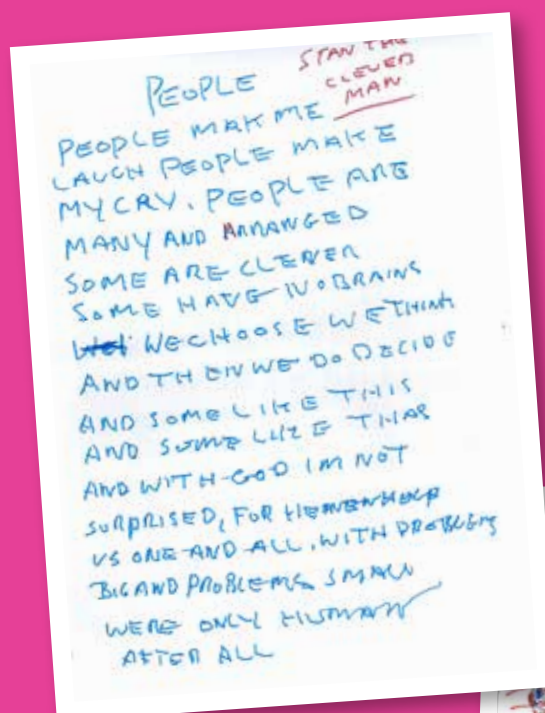 PEOPLE
STAN THE
CLEVER
MAN
PEOPLE MAK ME
LAUGH PEOPLE MAKE
MY CRY. PEOPLE ARE
MANY AND ARRANGED
SOME ARE CLEVER
SOME HAVE NO BRAINS
WE CHOOSE WE THINK
AND THEN WE DO DECIDE
AND SOME LIKE THIS
AND SOME LIKE THAS
AND WITH GOD IM NOT
SURPRISED, FOR HEAVEN HELP
US ONE AND ALL, WITH PROBLEMS
BIG AND PROBLEMS SMALL
WERE ONLY HUMAN
AFTER ALL